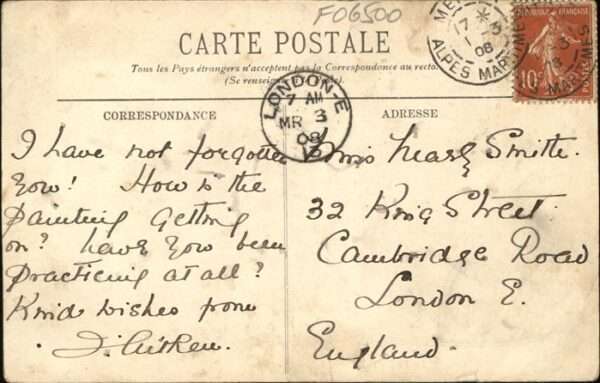 F06500
CARTE POSTALE
Tous les Pays étrangers n'acceptent pas la Correspondance au recto
(Se renseigner
CORRESPONDANCE
ADRESSE
ME
17
1
08
ALPES MARITIMES
RÉPUBLIQUE FRANÇAISE
10
POSTES
3
08
MARITIMES
LONDON-E
7 AM
MR 3
08
I have not forgotten
you! How is the
Painting getting
on? have you been
Practicing at all?
Kind wishes from
J. Aitken.
Miss Mary Smith.
32 King Street.
Cambridge Road
London E.
England.